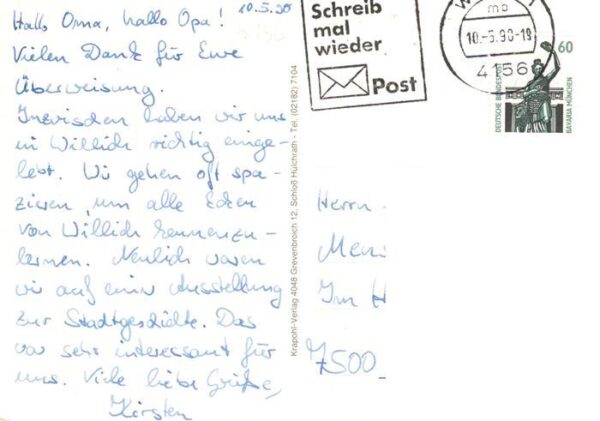 10.5.90
Hallo Oma, hallo Opa!
Vielen Dank für Eure
Überweisung.
Inzwischen haben wir uns
in Willich richtig einge-
lebt. Wir gehen oft spa-
zieren, um alle Ecken
von Willich kennenzu-
lernen. Neulich waren
wir auf einer Ausstellung
zur Stadtgeschichte. Das
war sehr interessant für
uns. Viele liebe Grüße,
Kirsten
Krapohl-Verlag 4048 Grevenbroich 12, Schloß Hülchrath · Tel. (02182) 7104
Schreib
mal
wieder
Post
W
mb
10.-5.90-19
4156
60
DEUTSCHE BUNDESPOST
BAVARIA MÜNCHEN
Herrn
Im H
7500